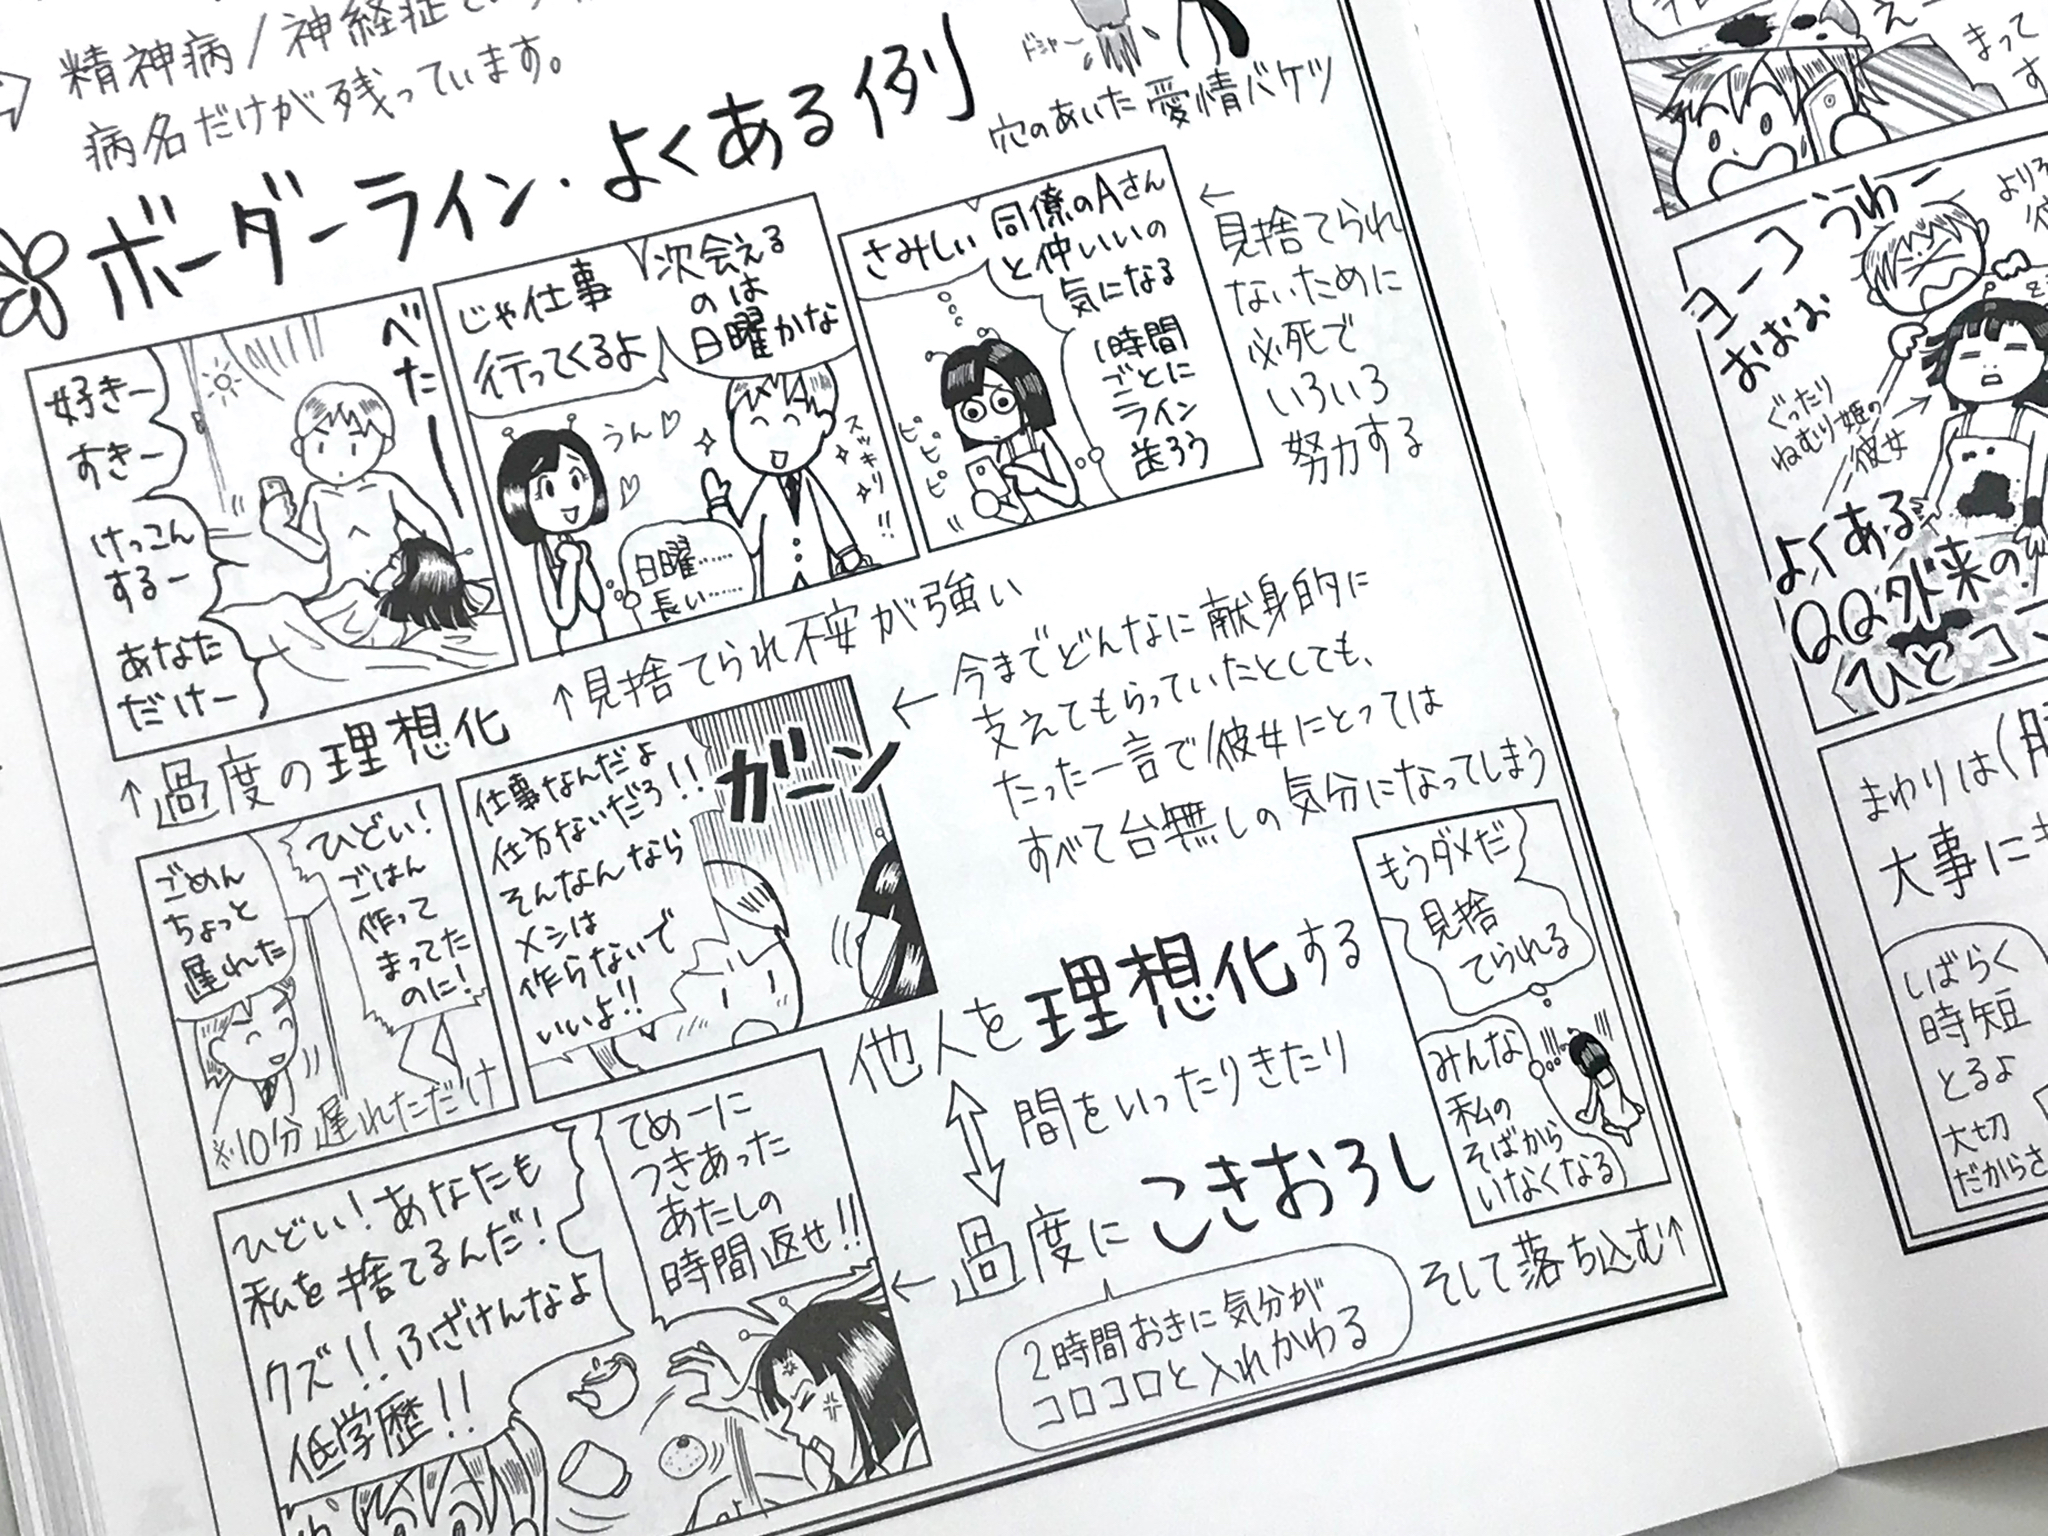 精神病/神経症
病名だけが残っています。
ボーダーライン・よくある例
ドシャー
穴のあいた愛情バケツ
好きー
すきー
けっこん
するー
あなた
だけー
べたーー
↑過度の理想化
じゃ仕事
行ってくるよ
次会える
のは
日曜かな
うん♡
スッキリ!!
日曜……
長い……
↑見捨てられ不安が強い
さみしい
同僚のAさん
と仲いいの
気になる
1時間
ごとに
ライン
送ろう
ピピピピ
←
見捨てられ
ないために
必死で
いろいろ
努力する
ごめん
ちょっと
遅れた
ひどい!
ごはん
作って
まってた
のに!
※10分遅れただけ
仕事なんだよ
仕方ないだろ!!
そんなんなら
メシは
作らないで
いいよ!!
ガーン
←今までどんなに献身的に
支えてもらっていたとしても、
たった一言で彼女にとっては
すべて台無しの気分になってしまう
ひどい!あなたも
私を捨てるんだ!
クズ!!ふざけんなよ
低学歴!!
てめーに
つきあった
あたしの
時間返せ!!
他人を理想化する
間をいったりきたり
←過度にこきおろし
2時間おきに気分が
コロコロと入れかわる
もうダメだ
見捨
てられる
みんな
私の
そばから
いなくなる
そして落ち込む↑
まって
ヨーコ
うわー
おおお
ぐったり
ねむり姫の
彼女
よくある
QQ外来の
ひとコマ
まわりは
大事に
しばらく
時短
とるよ
大切
だからさ